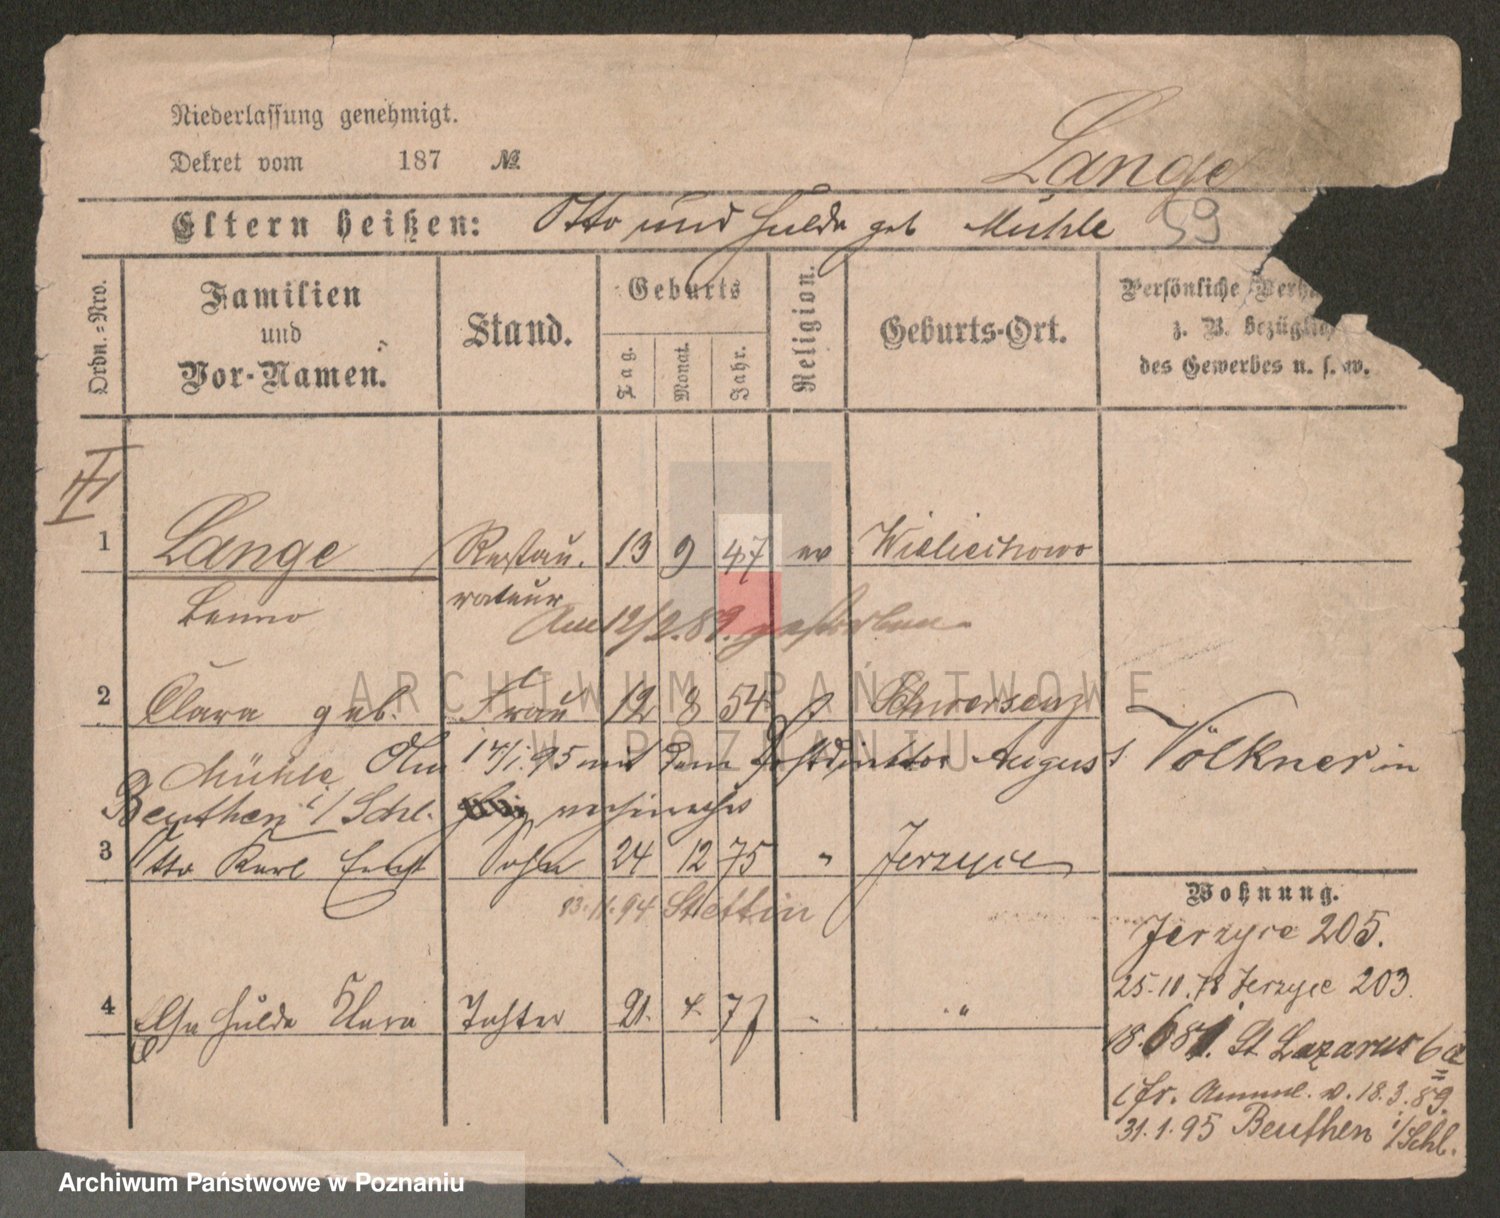 Niederlassung genehmigt.
Dekret vom 187 №
Lange
Eltern heißen: Otto und Hulda geb Mühle 59
Ordn.=Nro.
Familien
und
Vor-Namen.
Stand.
Geburts
Tag.
Monat.
Jahr.
Religion.
Geburts-Ort.
Persönliche Verh
z. B. bezüglich
des Gewerbes u. s. w.
1 Lange Restau. 13 9 47 ev Wielichowo
Benno rateur
Am 12/2.89. gestorben
2 Clara geb. Frau 12 8 54 Schwersenz
Mühle. 17/1.95 mit dem Postdirektor August Völkner in
Beuthen i/Schl.
3 Otto Karl Ernst Sohn 24 12 75 " Jerzyce
13.11.94 Stettin
4 Elsa Hulda Klara Tochter 21. 4. 77 " "
Wohnung.
Jerzyce 205.
25.10.78 Jerzyce 203.
18.6 81. St Lazarus 6a
fr. v. 18.3.89.
31.1.95 Beuthen i/Schl.
ARCHIWUM PAŃSTWOWE
W POZNANIU
Archiwum Państwowe w Poznaniu